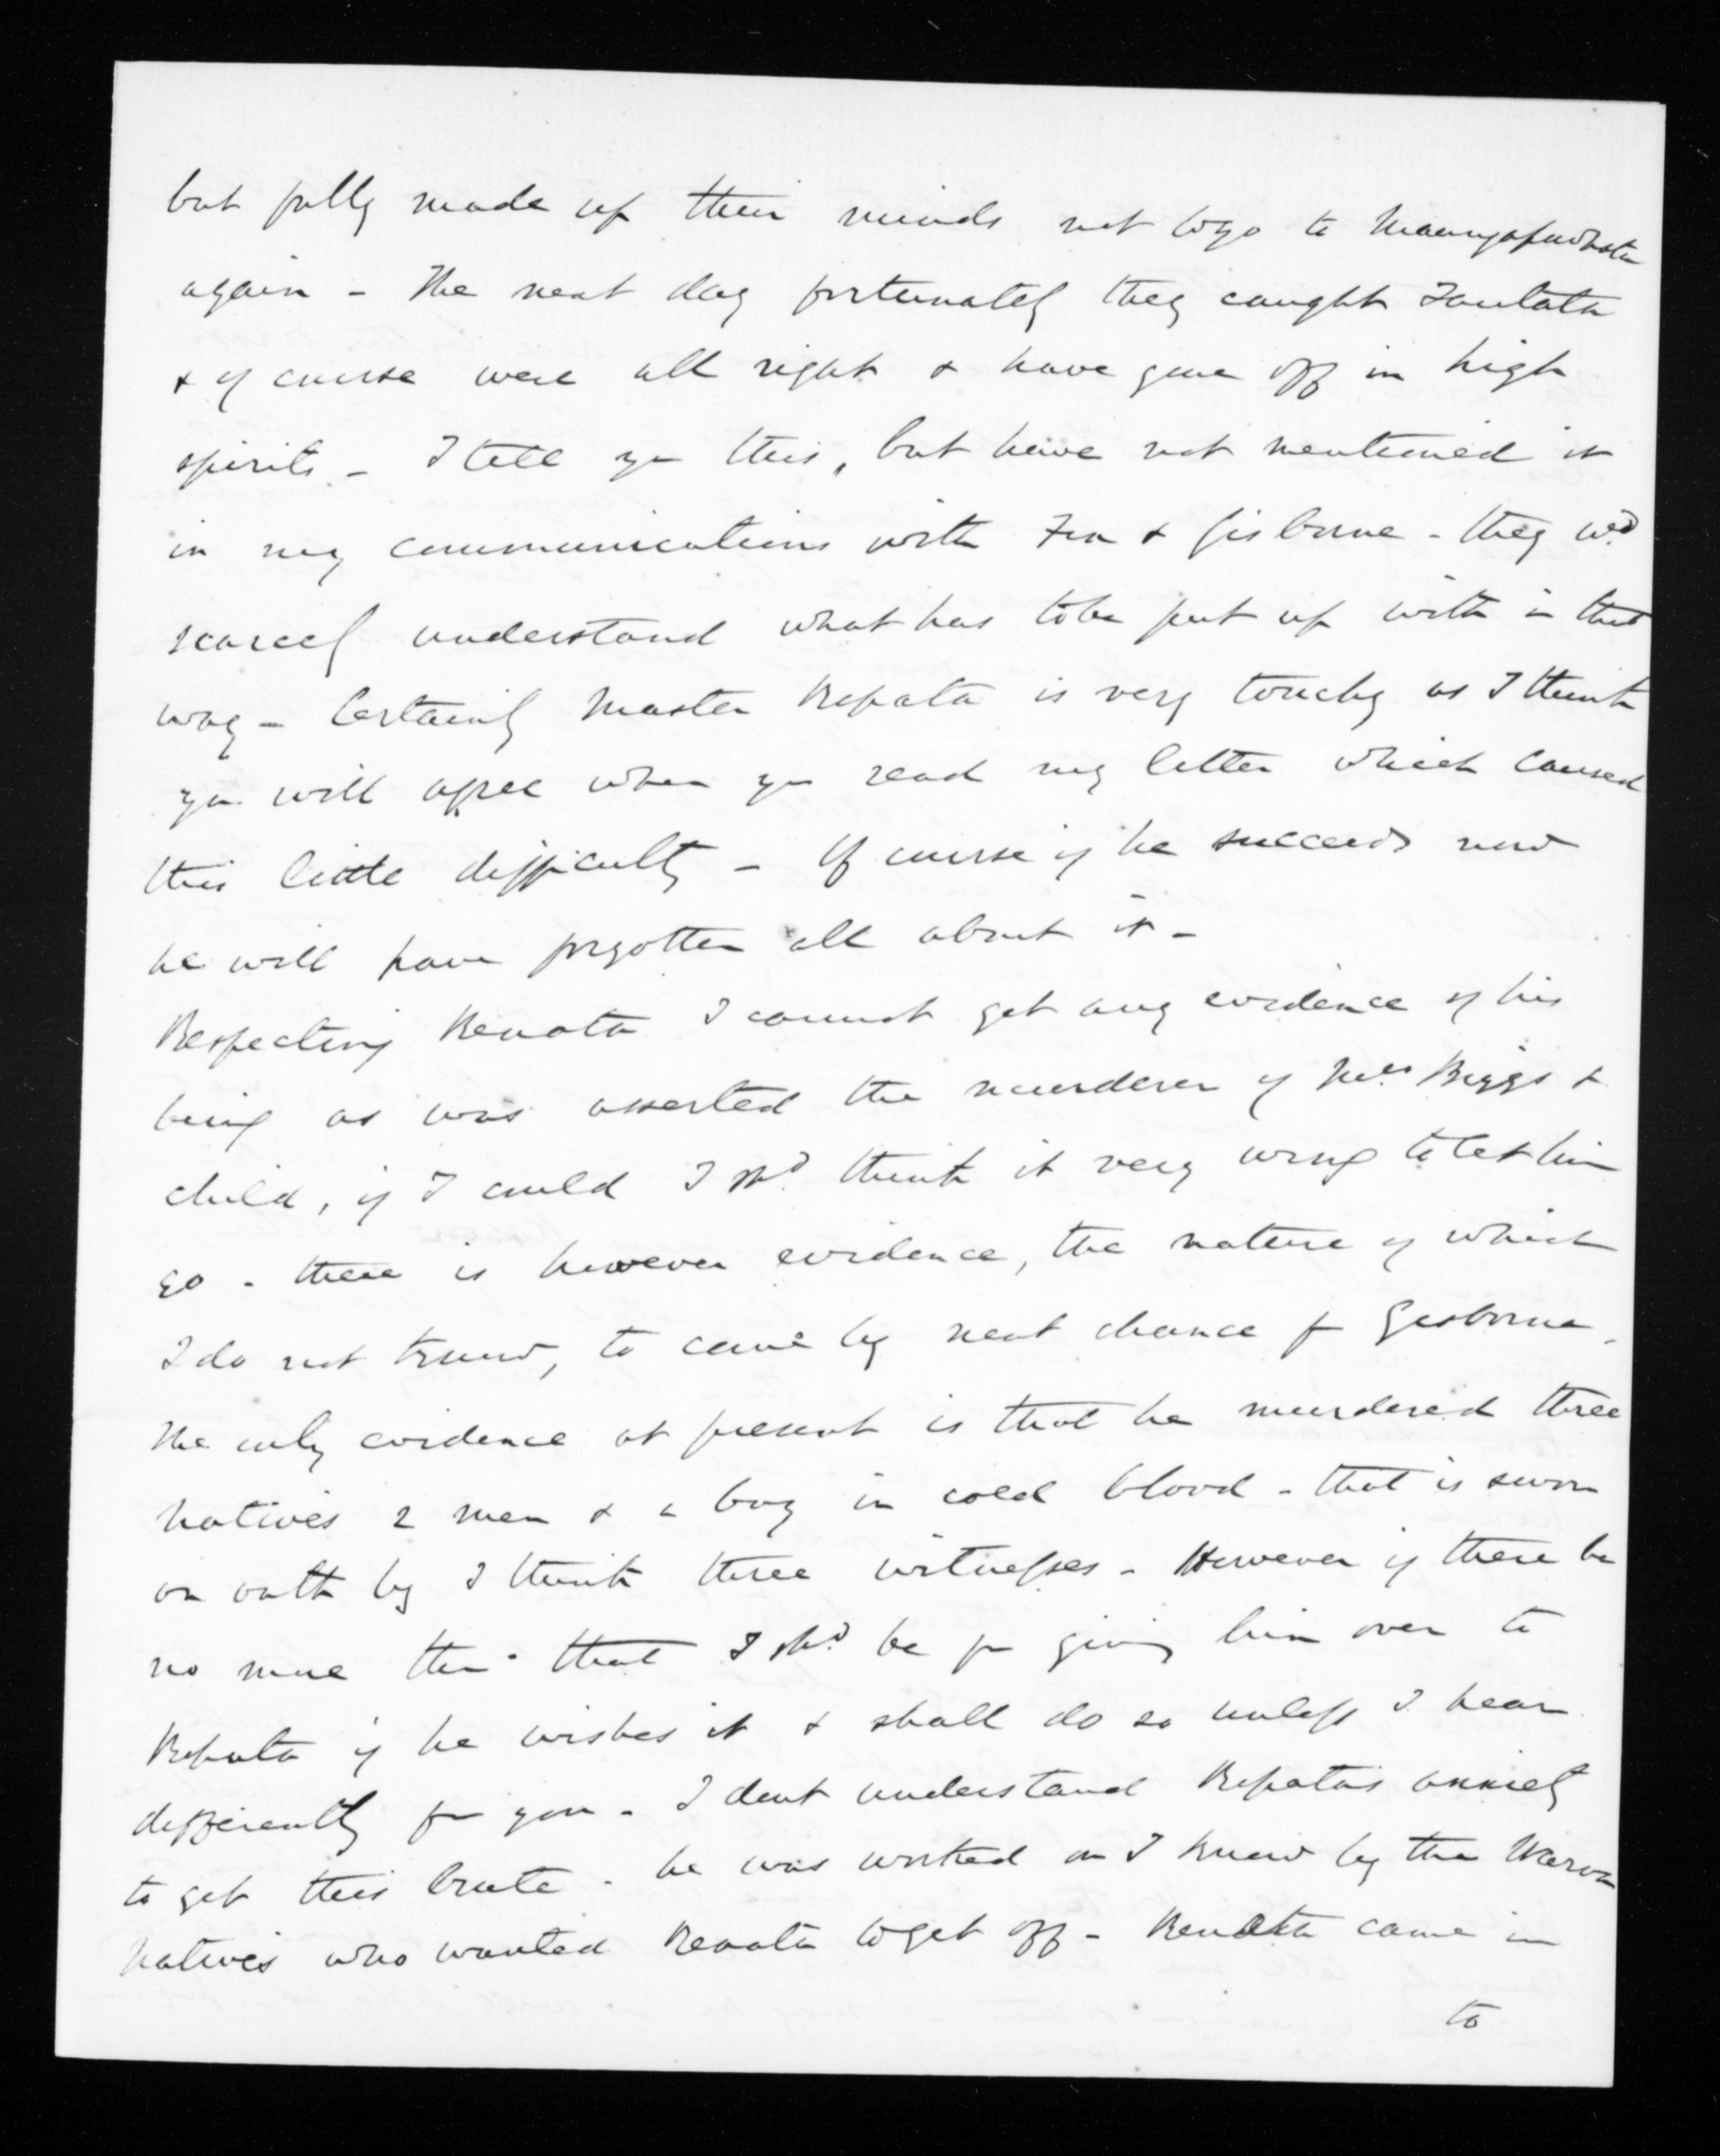 but fully made up their minds not to go to Maungapowhatu
again - The next day fortunately they caught Tautata
& of course were all right & have gone off in high
spirits - I tell you this, but have not mentioned it
in my communications with Fox & Gisborne - they wd
scarcely understand what has to be put up with in that
way - Certainly Master Ropata is very touchy as I think
you will agree when you read my letter which caused
this little difficulty - Of course if he succeeds now
he will have forgotten all about it -
Respecting Renata I cannot get any evidence of his
being as was asserted the murderer of Mrs Biggs &
child, if I could I shd think it very wrong to let him
go - there is however evidence, the nature of which
I do not know, to come by next chance fr Gisborne -
The only evidence at present is that he murdered three
natives 2 men & a boy in cold blood - that is sworn
on oath by I think three witnesses - However if there be
no more than that I shd be for giving him over to
Ropata if he wishes it & shall do so unless I hear
differently fr you - I dont understand Ropata's anxiety
to get this brute - he was worked on I know by the Wairoa
natives who wanted Renata to get off - Renata came in
to